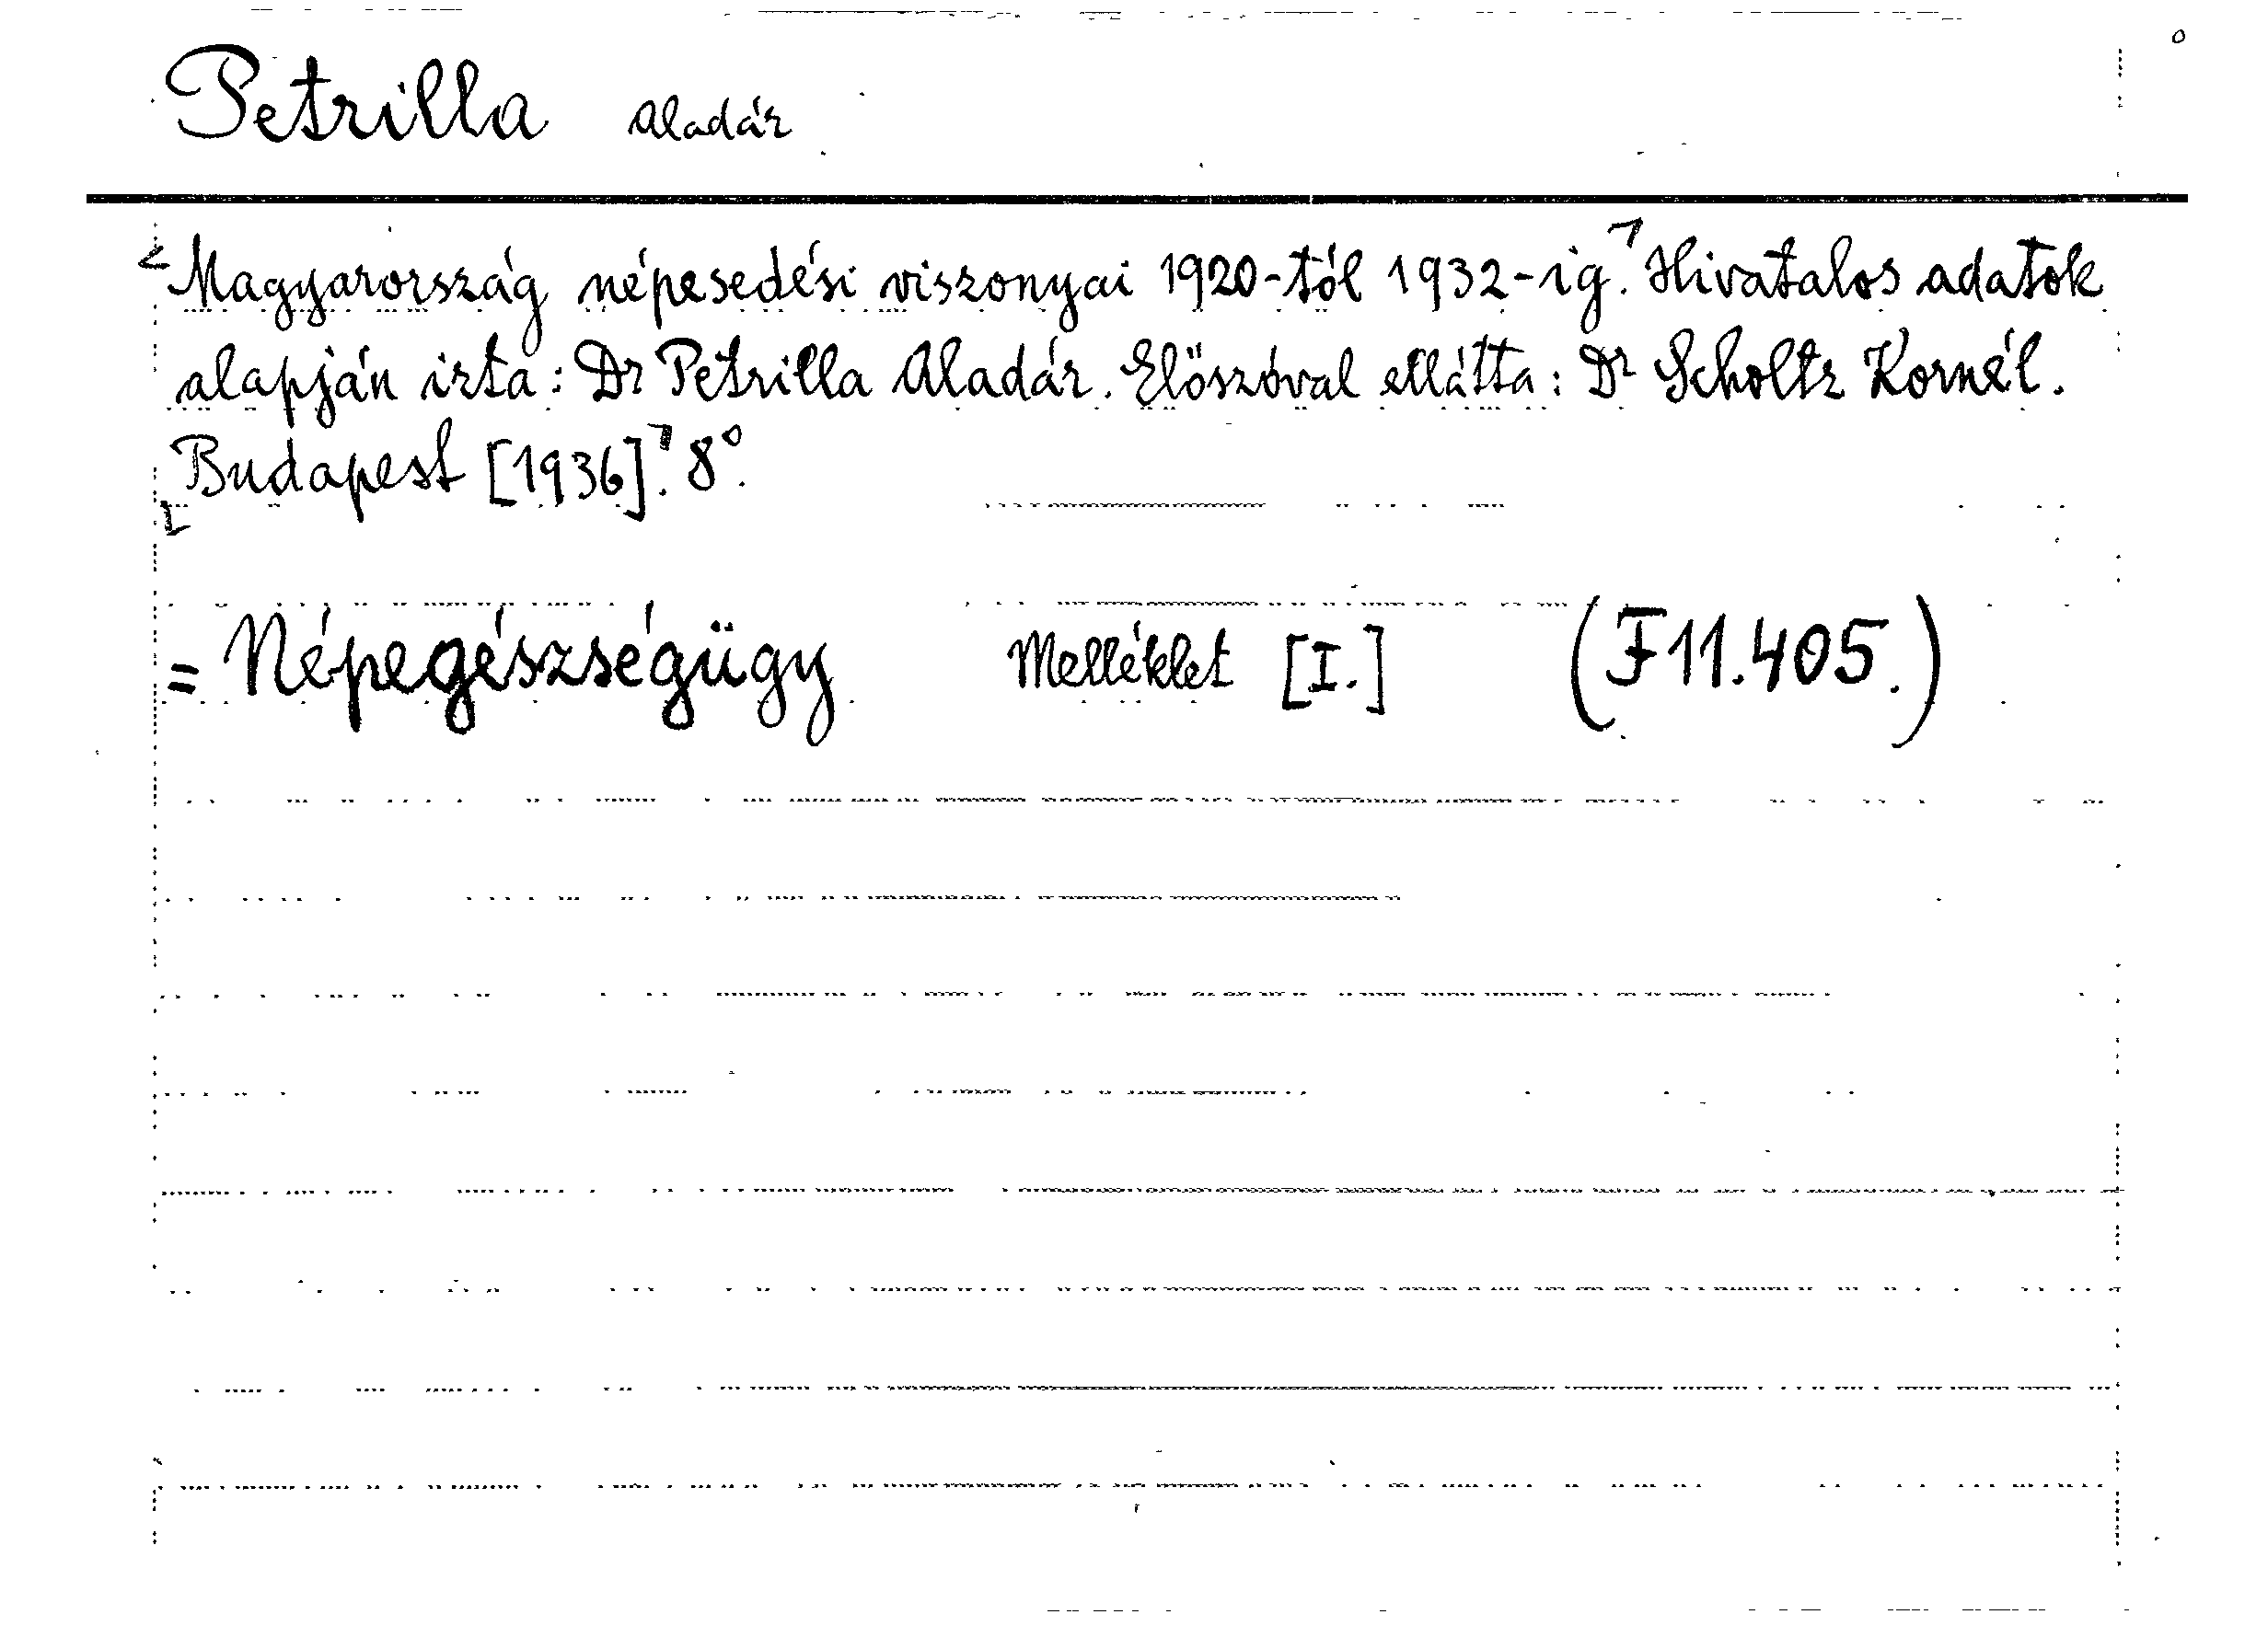 Petrilla Aladár
Magyarország népesedési viszonyai 1920-tól 1932-ig. Hivatalos adatok
alapján irta: Dr Petrilla Aladár. Előszóval ellátta: Dr Scholtz Kornél.
Budapest [1936]. 8°.
= Népegészségügy Melléklet [I.] (F11.405.)